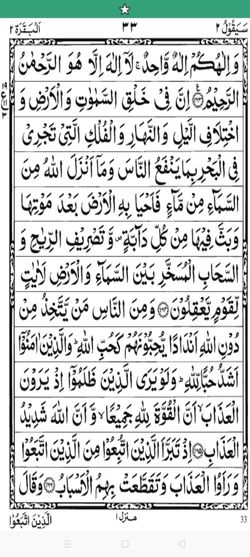 سَيَقُولُ ٢ ٣٣ اَلْبَقَرَة ٢
وَاِلٰهُكُمْ اِلٰهٌ وَّاحِدٌ ۚ لَآ اِلٰهَ اِلَّا هُوَ الرَّحْمٰنُ
الرَّحِيْمُ ۝١٦٣ اِنَّ فِيْ خَلْقِ السَّمٰوٰتِ وَالْاَرْضِ وَ
اخْتِلَافِ الَّيْلِ وَالنَّهَارِ وَالْفُلْكِ الَّتِيْ تَجْرِيْ
فِي الْبَحْرِ بِمَا يَنْفَعُ النَّاسَ وَمَآ اَنْزَلَ اللّٰهُ مِنَ
السَّمَآءِ مِنْ مَّآءٍ فَاَحْيَا بِهِ الْاَرْضَ بَعْدَ مَوْتِهَا
وَبَثَّ فِيْهَا مِنْ كُلِّ دَآبَّةٍ ۪ وَّتَصْرِيْفِ الرِّيٰحِ وَ
السَّحَابِ الْمُسَخَّرِ بَيْنَ السَّمَآءِ وَالْاَرْضِ لَاٰيٰتٍ
لِّقَوْمٍ يَّعْقِلُوْنَ ۝١٦٤ وَمِنَ النَّاسِ مَنْ يَّتَّخِذُ مِنْ
دُوْنِ اللّٰهِ اَنْدَادًا يُّحِبُّوْنَهُمْ كَحُبِّ اللّٰهِ ؕ وَالَّذِيْنَ اٰمَنُوْٓا
اَشَدُّ حُبًّا لِّلّٰهِ ؕ وَلَوْ يَرَى الَّذِيْنَ ظَلَمُوْٓا اِذْ يَرَوْنَ
الْعَذَابَ ۙ اَنَّ الْقُوَّةَ لِلّٰهِ جَمِيْعًا ۙ وَّاَنَّ اللّٰهَ شَدِيْدُ
الْعَذَابِ ۝١٦٥ اِذْ تَبَرَّاَ الَّذِيْنَ اتُّبِعُوْا مِنَ الَّذِيْنَ اتَّبَعُوْا
وَرَاَوُا الْعَذَابَ وَتَقَطَّعَتْ بِهِمُ الْاَسْبَابُ ۝١٦٦ وَقَالَ
الَّذِيْنَ اتَّبَعُوْا منزل ١ 33